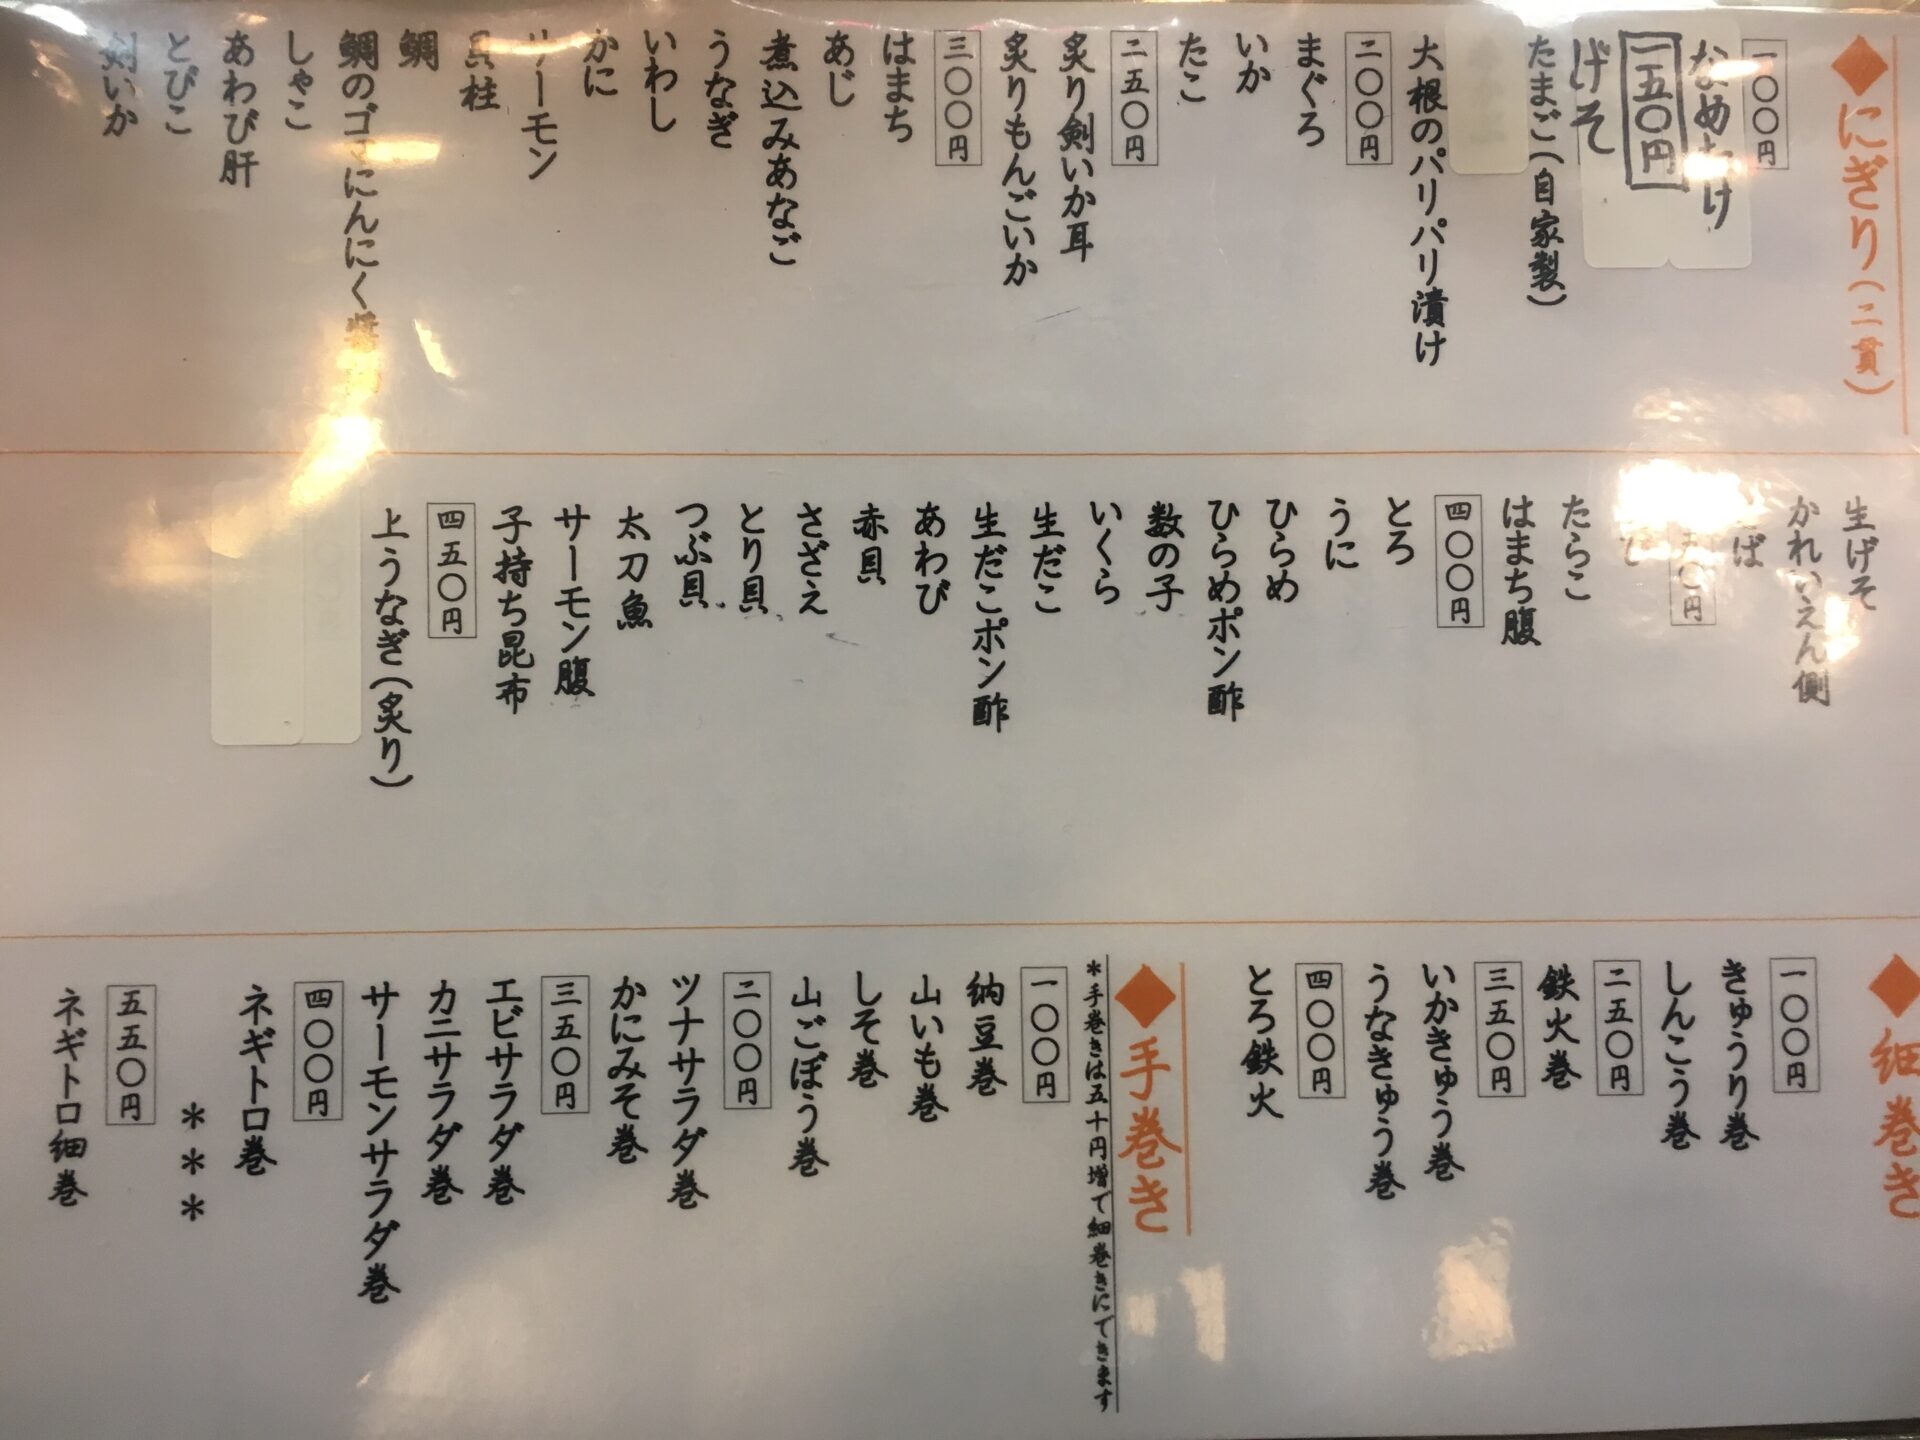 ◆にぎり（二貫）
一〇〇円
なめたけ
一五〇円
げそ
たまご（自家製）
大根のパリパリ漬け
二〇〇円
まぐろ
いか
たこ
二五〇円
炙り剣いか耳
炙りもんごいか
三〇〇円
はまち
あじ
煮込みあなご
うなぎ
いわし
かに
サーモン
貝柱
鯛
鯛のゴマにんにく醤油
しゃこ
あわび肝
とびこ
剣いか
生げそ
かれいえん側
たらこ
はまち腹
四〇〇円
とろ
うに
ひらめ
ひらめポン酢
数の子
いくら
生だこ
生だこポン酢
あわび
赤貝
さざえ
とり貝
つぶ貝
太刀魚
サーモン腹
子持ち昆布
四五〇円
上うなぎ（炙り）
◆細巻き
一〇〇円
きゅうり巻
しんこう巻
二五〇円
鉄火巻
三五〇円
いかきゅう巻
うなきゅう巻
四〇〇円
とろ鉄火
◆手巻き
＊手巻きは五十円増で細巻きにできます
一〇〇円
納豆巻
山いも巻
しそ巻
山ごぼう巻
二〇〇円
ツナサラダ巻
かにみそ巻
三五〇円
エビサラダ巻
カニサラダ巻
サーモンサラダ巻
四〇〇円
ネギトロ巻
＊＊＊
五五〇円
ネギトロ細巻